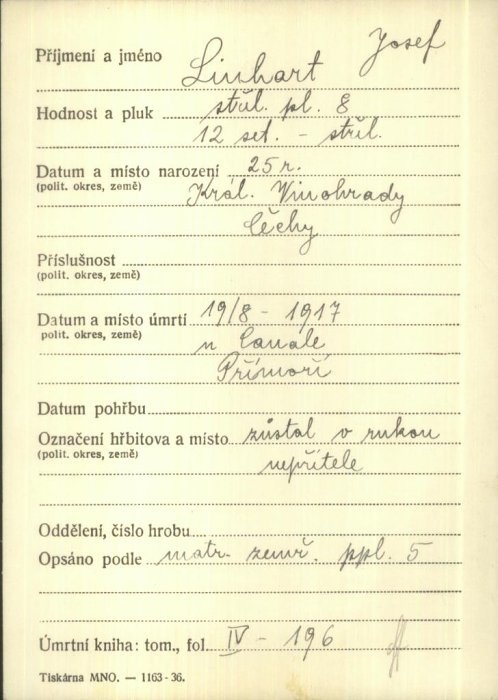 Příjmení a jméno Linhart Josef
Hodnost a pluk střel. pl. 8
12 set. - střel.
Datum a místo narození 25 r.
(polit. okres, země) Král. Vinohrady
Čechy
Příslušnost
(polit. okres, země)
Datum a místo úmrtí 19/8 - 1917
polit. okres, země) u Canale
Přímoří
Datum pohřbu
Označení hřbitova a místo zůstal v rukou
(polit. okres, země) nepřítele
Oddělení, číslo hrobu
Opsáno podle matr. zemř. ppl. 5
Úmrtní kniha: tom., fol. IV - 196
Tiskárna MNO. — 1163-36.